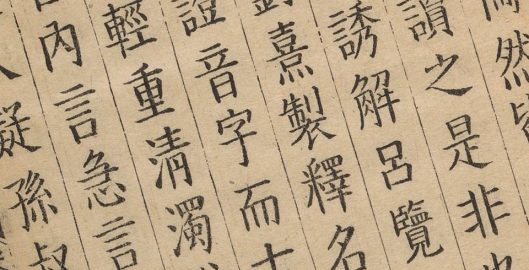 然皆
讀之是非也
誘解呂覽
劉熹製釋名
證音字而
輕重清濁
內言急言
人疑孫叔